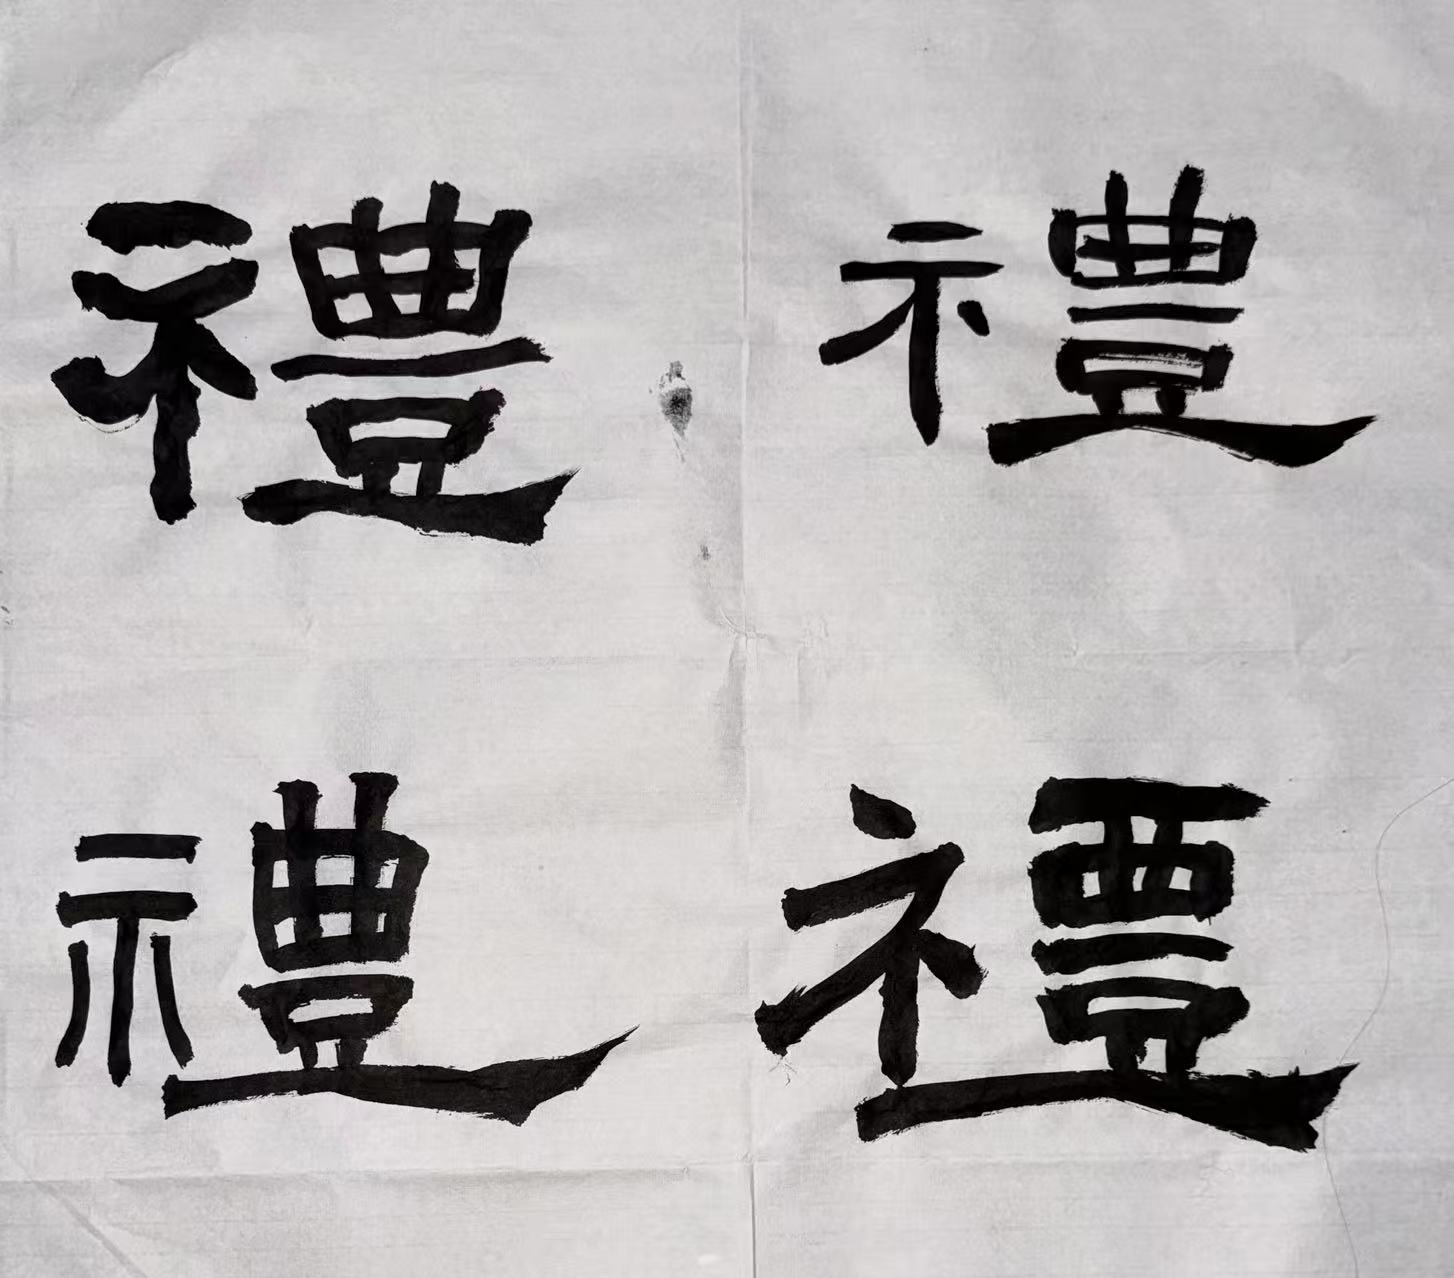 禮 禮
禮 禮